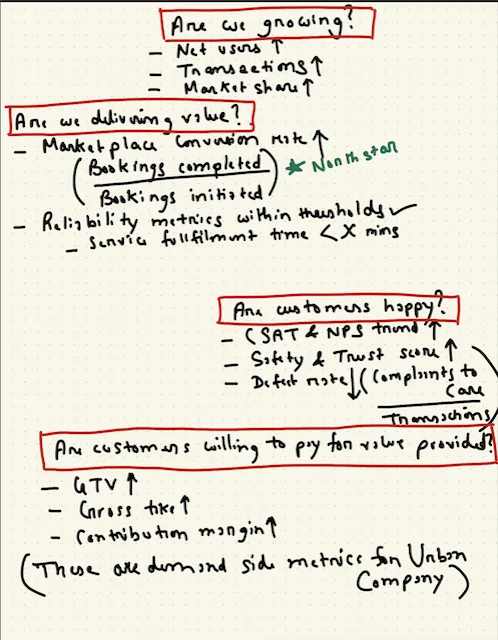 Are we growing?
- Net users ↑
- Transactions ↑
- Market share ↑
Are we delivering value?
- Marketplace conversion rate ↑
(Bookings completed
Bookings initiated)
★ North star
- Reliability metrics within thresholds ✓
- Service fullfilment time < X mins
Are customers happy?
- CSAT & NPS trend ↑
- Safety & Trust score ↑
- Defect rate ↓ (Complaints to
Care
Transactions)
Are customers willing to pay for value provided?
- GTV ↑
- Gross take ↑
- Contribution margin ↑
(These are demand side metrics for Urban
Company)